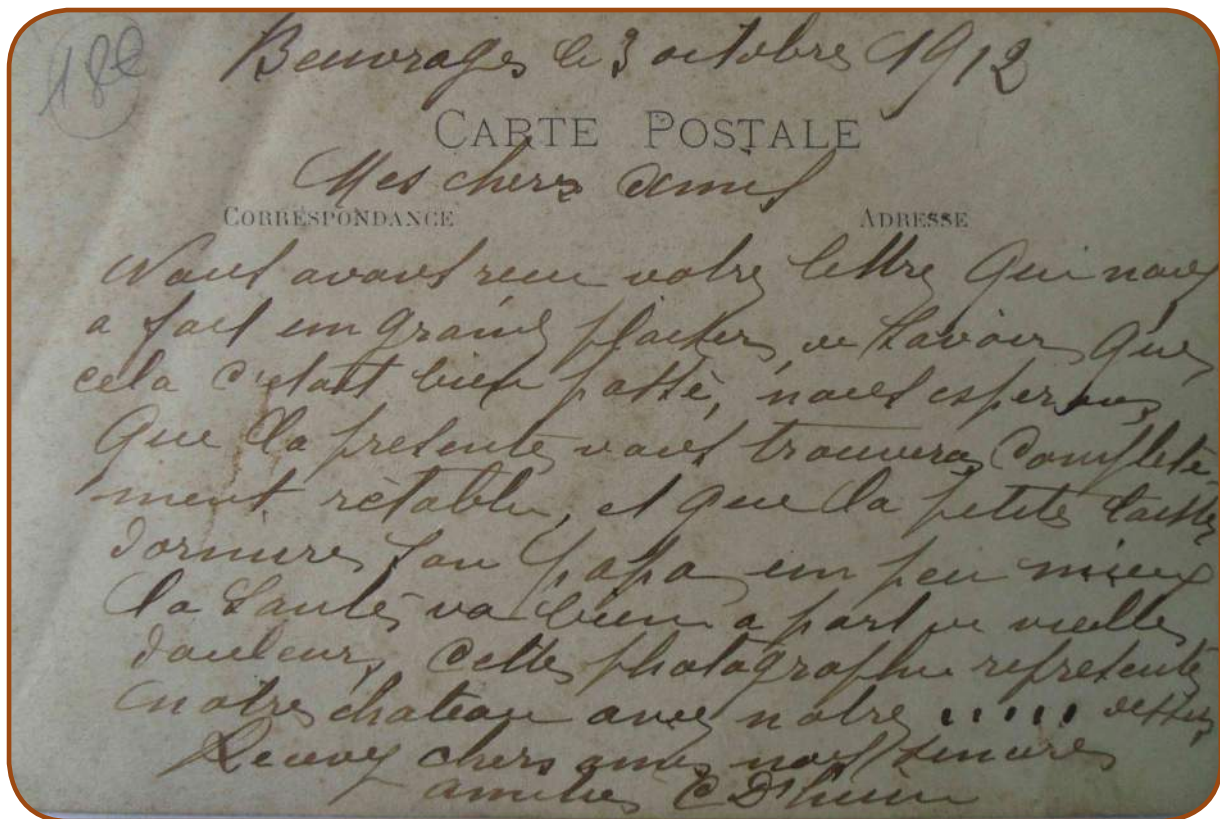 18e
Beuvrages le 3 octobre 1912
CARTE POSTALE
Mes chers amis
CORRESPONDANCE ADRESSE
Nous avons recu votre lettre qui nous
a fait un grand plaisir, de savoir que
cela c'etait bien passé, nous esperons
que la presente vous trouvera complete
ment rétablie, et que la petite laisse
dormire son papa un peu mieux
la santé va bien a part de vielles
douleurs, cette photographie represente
notre chateau avec notre ..... dessus
Recevez chers amis nos sincères
amities